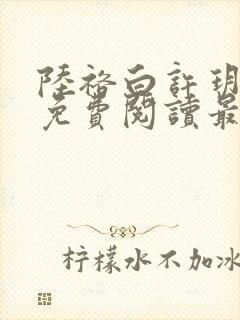 陸裕白許玥
免費閱讀最
柠檬水不加冰